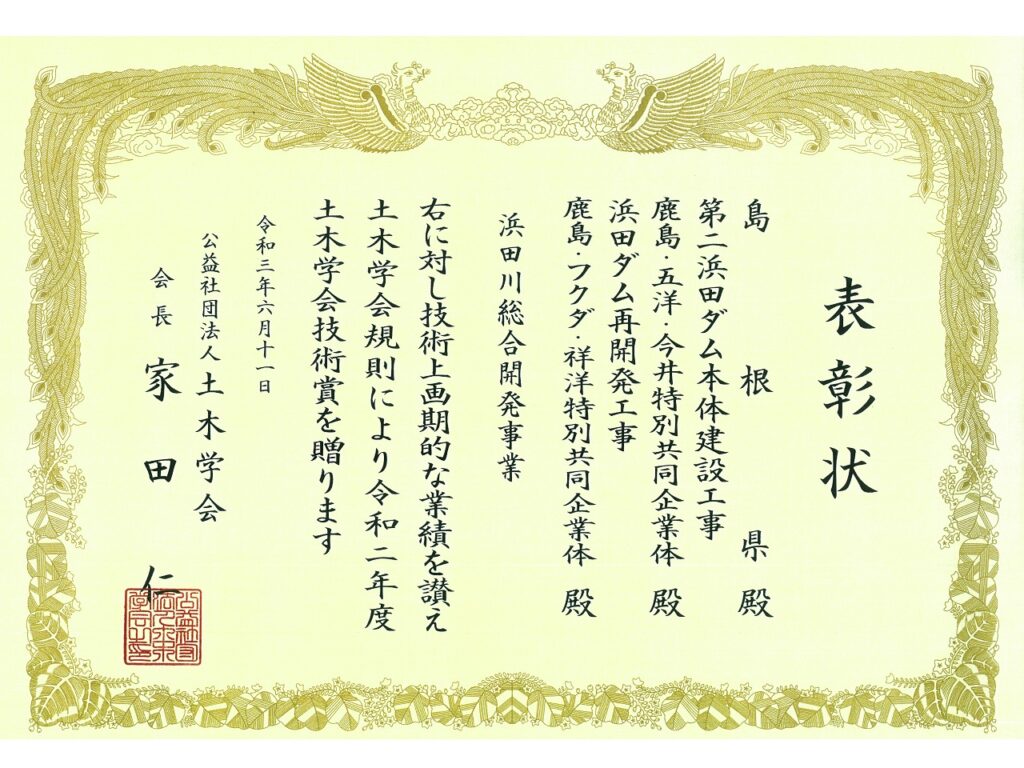 表彰状
島根県殿
第二浜田ダム本体建設工事
鹿島・五洋・今井特別共同企業体 殿
浜田ダム再開発工事
鹿島・フクダ・祥洋特別共同企業体 殿
浜田川総合開発事業
右に対し技術上画期的な業績を讃え
土木学会規則により令和二年度
土木学会技術賞を贈ります
令和三年六月十一日
公益社団法人 土木学会
会長 家田 仁